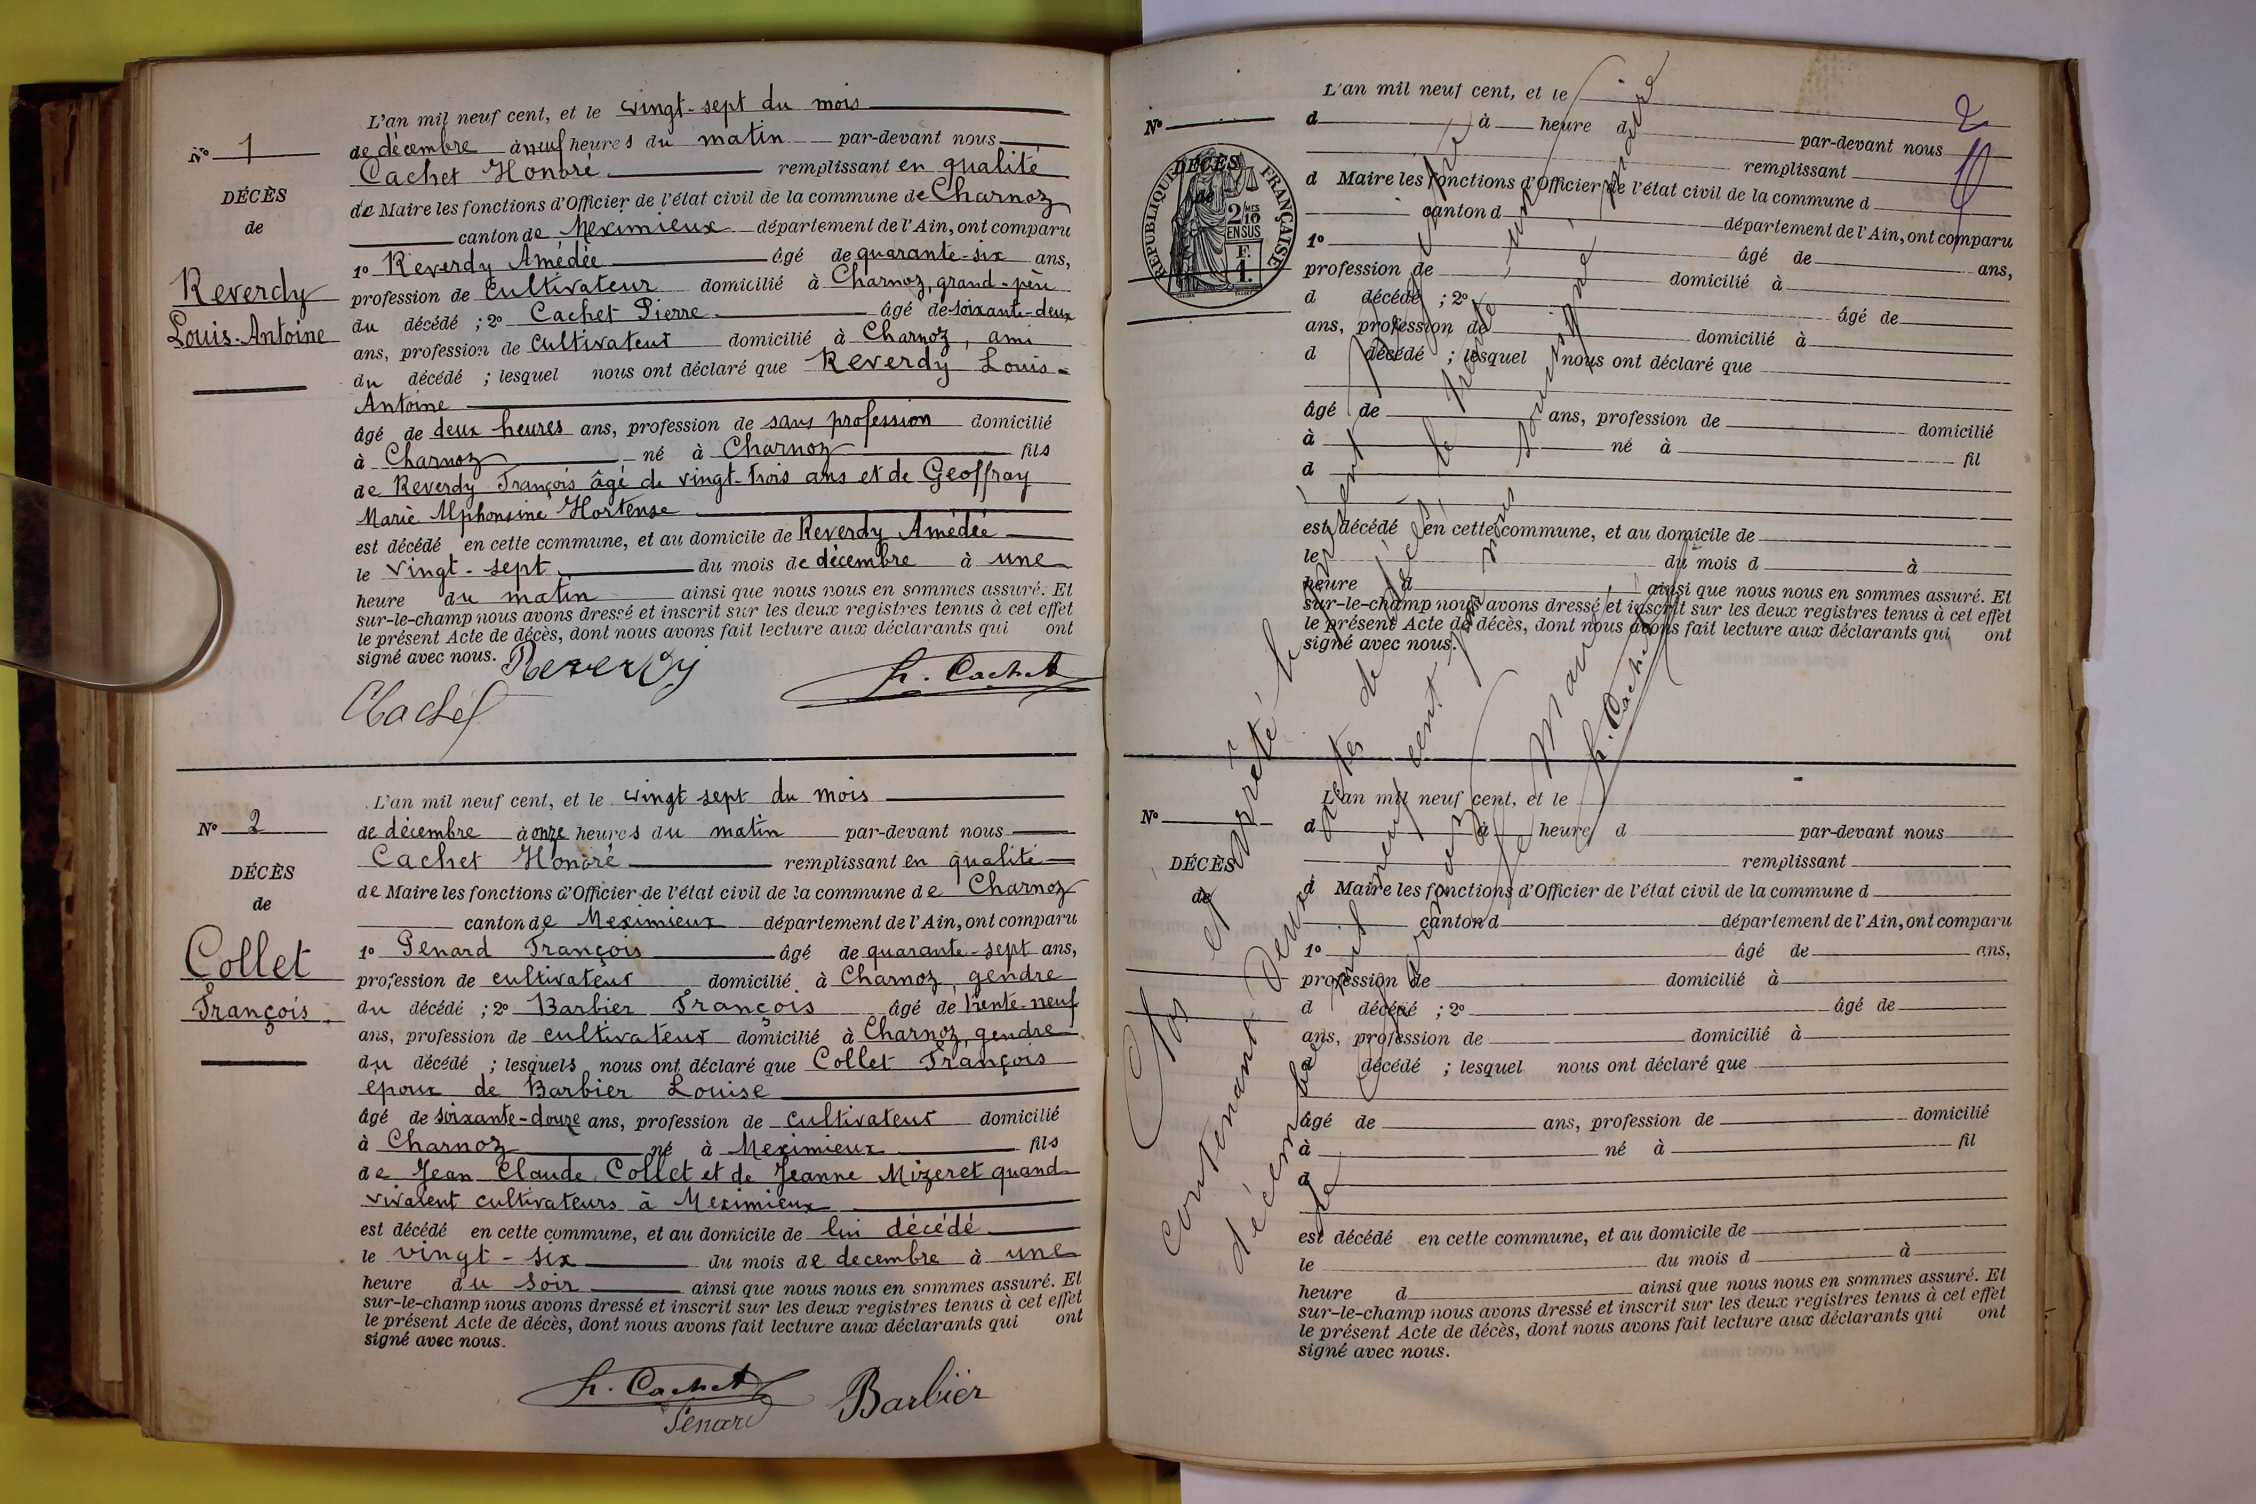 L'an mil neuf cent, et le vingt-sept du mois
N° 1
de décembre à neuf heures du matin par-devant nous
Cachet Honoré remplissant en qualité
DÉCÈS
de Maire les fonctions d'Officier de l'état civil de la commune de Charnoz
de
canton de Meximieux département de l'Ain, ont comparu
1° Reverdy Amédée âgé de quarante-six ans,
Reverdy
profession de cultivateur domicilié à Charnoz, grand-père
du décédé ; 2° Cachet Pierre âgé de soixante-deux
Louis-Antoine
ans, profession de cultivateur domicilié à Charnoz, ami
du décédé ; lesquel nous ont déclaré que Reverdy Louis-
Antoine
âgé de deux heures ans, profession de sans profession domicilié
à Charnoz né à Charnoz fils
de Reverdy François âgé de vingt-trois ans et de Geoffray
Marie Alphonsine Hortense
est décédé en cette commune, et au domicile de Reverdy Amédée
le vingt-sept du mois de décembre à une
heure du matin ainsi que nous nous en sommes assuré. Et
sur-le-champ nous avons dressé et inscrit sur les deux registres tenus à cet effet
le présent Acte de décès, dont nous avons fait lecture aux déclarants qui ont
signé avec nous.
Reverdy
h. Cachet
Cachet
L'an mil neuf cent, et le vingt sept du mois
N° 2
de décembre à onze heures du matin par-devant nous
Cachet Honoré remplissant en qualité
DÉCÈS
de Maire les fonctions d'Officier de l'état civil de la commune de Charnoz
de
canton de Meximieux département de l'Ain, ont comparu
1° Penard François âgé de quarante-sept ans,
Collet
profession de cultivateur domicilié à Charnoz, gendre
François
du décédé ; 2° Barbier François âgé de trente-neuf
ans, profession de cultivateur domicilié à Charnoz, gendre
du décédé ; lesquels nous ont déclaré que Collet François
époux de Barbier Louise
âgé de soixante-douze ans, profession de cultivateur domicilié
à Charnoz né à Meximieux fils
de Jean Claude Collet et de Jeanne Mizeret quand
vivaient cultivateurs à Meximieux
est décédé en cette commune, et au domicile de lui décédé
le vingt-six du mois de decembre à une
heure du soir ainsi que nous nous en sommes assuré. Et
sur-le-champ nous avons dressé et inscrit sur les deux registres tenus à cet effet
le présent Acte de décès, dont nous avons fait lecture aux déclarants qui ont
signé avec nous.
h. Cachet
Penard
Barbier
L'an mil neuf cent, et le
2
N°
d à heure d par-devant nous
remplissant
DÉCÈS
de
RÉPUBLIQUE FRANÇAISE
2/10 MES
EN SUS
F.
1.
d Maire les fonctions d'Officier de l'état civil de la commune d
canton d département de l'Ain, ont comparu
1° âgé de ans,
profession de domicilié à
d décédé ; 2° âgé de
ans, profession de domicilié à
d décédé ; lesquel nous ont déclaré que
âgé de ans, profession de domicilié
à né à fil
d
est décédé en cette commune, et au domicile de
le du mois d à
heure d ainsi que nous nous en sommes assuré. Et
sur-le-champ nous avons dressé et inscrit sur les deux registres tenus à cet effet
le présent Acte de décès, dont nous avons fait lecture aux déclarants qui ont
signé avec nous.
Clos et arrêté le présent registre
contenant deux actes de décès, le trente-un
décembre mil neuf cent par nous soussigné,
Le Maire
h. Cachet
L'an mil neuf cent, et le
N°
d à heure d par-devant nous
remplissant
DÉCÈS
de
d Maire les fonctions d'Officier de l'état civil de la commune d
canton d département de l'Ain, ont comparu
1° âgé de ans,
profession de domicilié à
d décédé ; 2° âgé de
ans, profession de domicilié à
d décédé ; lesquel nous ont déclaré que
âgé de ans, profession de domicilié
à né à fil
d
est décédé en cette commune, et au domicile de
le du mois d à
heure d ainsi que nous nous en sommes assuré. Et
sur-le-champ nous avons dressé et inscrit sur les deux registres tenus à cet effet
le présent Acte de décès, dont nous avons fait lecture aux déclarants qui ont
signé avec nous.